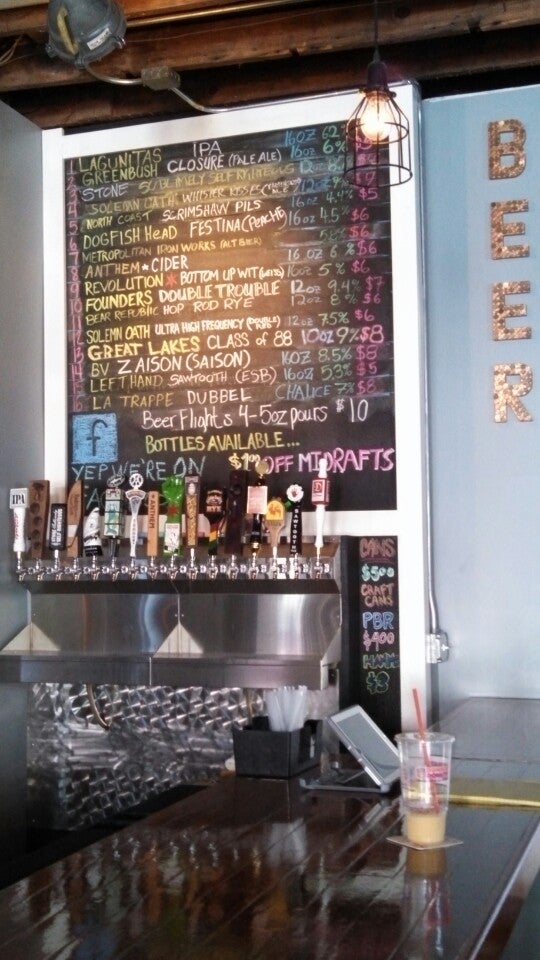 1 LAGUNITAS IPA 16OZ 6.2%
2 GREENBUSH CLOSURE (PALE ALE) 16OZ 6%
3 STONE SUBLIMELY SELF RIGHTEOUS 12OZ
4 SOLEMN OATH WHISPER KISSES 12OZ
5 NORTH COAST SCRIMSHAW PILS 16OZ 4.4% $5
6 DOGFISH HEAD FESTINA (PEACHE) 16OZ 4.5% $6
7 METROPOLITAN IRON WORKS (ALT BIER) 5.8% $6
8 ANTHEM CIDER 16OZ 6% $6
9 REVOLUTION BOTTOM UP WIT 16OZ 5% $6
10 FOUNDERS DOUBLE TROUBLE 12OZ 9.4% $7
11 BEAR REPUBLIC HOP ROD RYE 12OZ 8% $6
12 SOLEMN OATH ULTRA HIGH FREQUENCY 12OZ 7.5% $6
13 GREAT LAKES CLASS OF 88 10OZ 9% $8
14 BV ZAISON (SAISON) 16OZ 8.5% $8
15 LEFT HAND SAWTOOTH (ESB) 16OZ 5.3% $5
16 LA TRAPPE DUBBEL CHALICE 7% $8
Beer Flights 4-5oz pours $10
BOTTLES AVAILABLE...
f YEP WE'RE ON
$1.00 OFF MI DRAFTS
BEER
IPA
ANTHEM
SAWTOOTH
CANS
$5.00
CRAFT
CANS
PBR
$4.00
$3